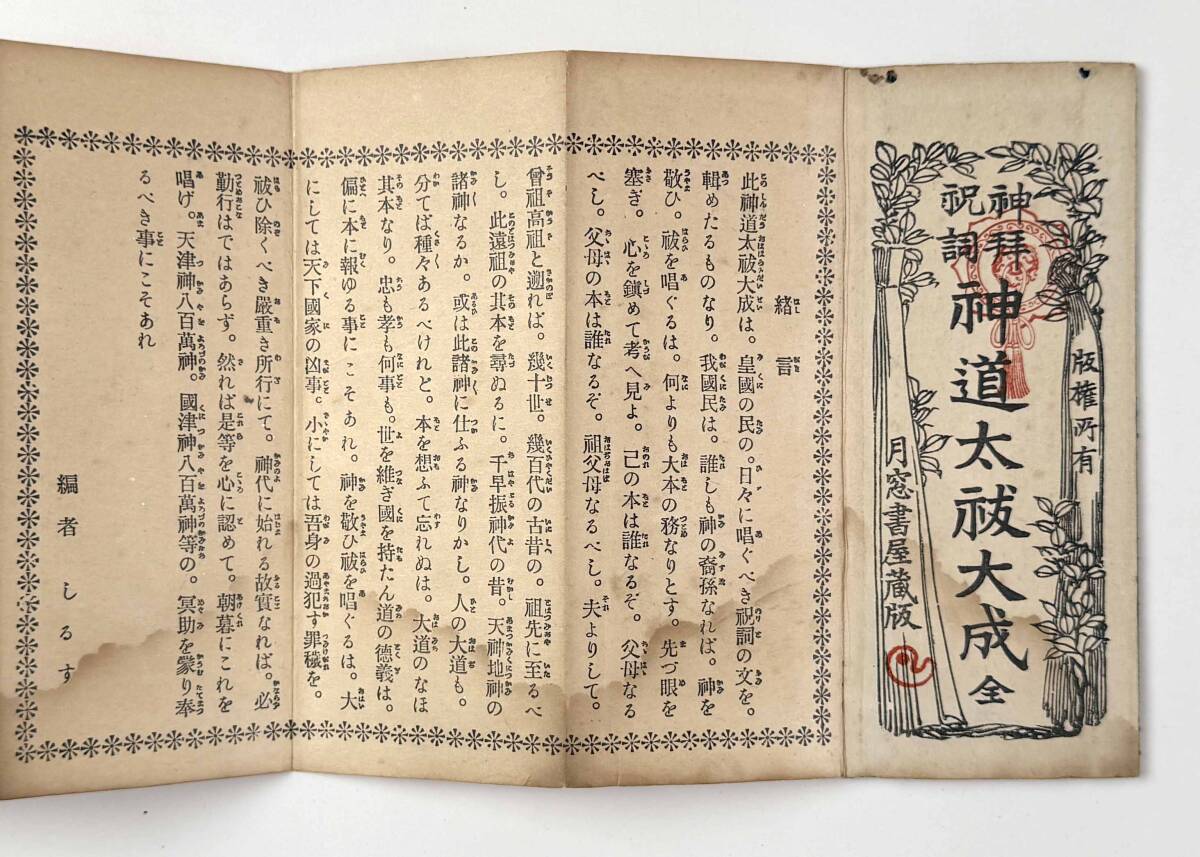 版權所有
神拜
祝詞
神道太祓大成 全
月窓書屋蔵版
緒言
此神道太祓大成は。皇國の民の。日々に唱ぐべき祝詞の文を。
輯めたるものなり。我國民は。誰しも神の裔孫なれば。神を
敬ひ。祓を唱ぐるは。何よりも大本の務なりとす。先づ眼を
塞ぎ。心を鎭めて考へ見よ。己の本は誰なるぞ。父母なる
べし。父母の本は誰なるぞ。祖父母なるべし。夫よりして。
曾祖高祖と遡れば。幾十世。幾百代の古昔の。祖先に至るべ
し。此遠祖の其本を尋ぬるに。千早振神代の昔。天神地神の
諸神なるか。或は此諸神に仕ふる神なりかし。人の大道も。
分てば種々あるべけれと。本を想ふて忘れぬは。大道のなほ
其本なり。忠も孝も何事も。世を維ぎ國を持たん道の德義は。
偏に本に報ゆる事にこそあれ。神を敬ひ祓を唱ぐるは。大
にしては天下國家の凶事。小にしては吾身の過犯す罪穢を。
祓ひ除くべき嚴重き所行にて。神代に始れる故實なれば。必
勤行はではあらず。然れば是等を心に認めて。朝暮にこれを
唱げ。天津神八百萬神。國津神八百萬神等の。冥助を蒙り奉
るべき事にこそあれ
編者しるす